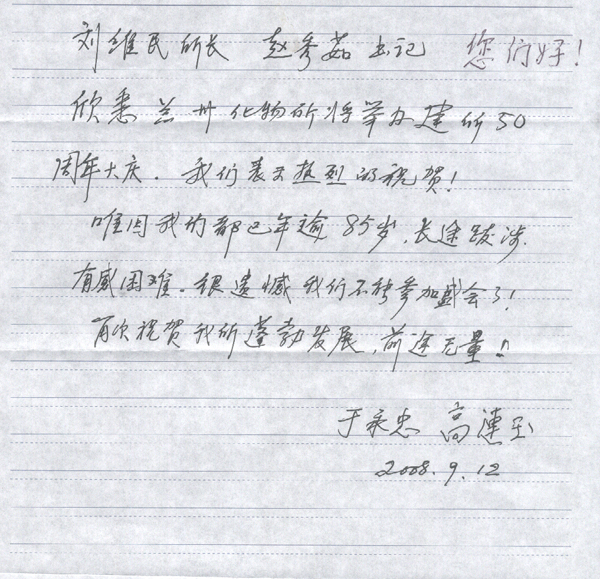 刘维民所长 赵秀茹书记 您们好!
欣悉兰州化物所将举办建所50
周年大庆. 我们表示热烈的祝贺!
唯因我们都已年逾85岁,长途跋涉.
有感困难. 很遗憾我们不能参加盛会了!
再次祝贺我所蓬勃发展,前途无量!!
于永忠 高莲玉
2008.9.12